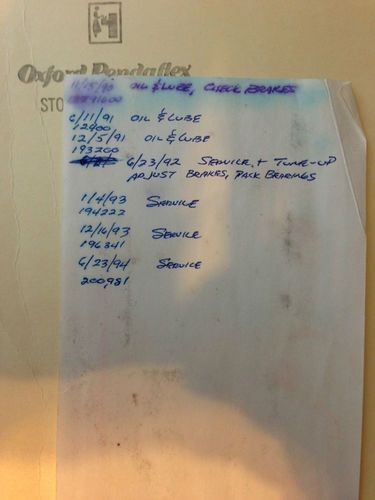 Oxford Pendaflex
STO
11/15/90 OIL & LUBE, CHECK BRAKES
6/11/91 OIL & LUBE
12900
12/5/91 OIL & LUBE
193200
6/23/92 SERVICE + TUNE-UP
ADJUST BRAKES, PACK BEARINGS
1/4/93 SERVICE
194222
12/16/93 SERVICE
196341
6/23/94 SERVICE
200,981